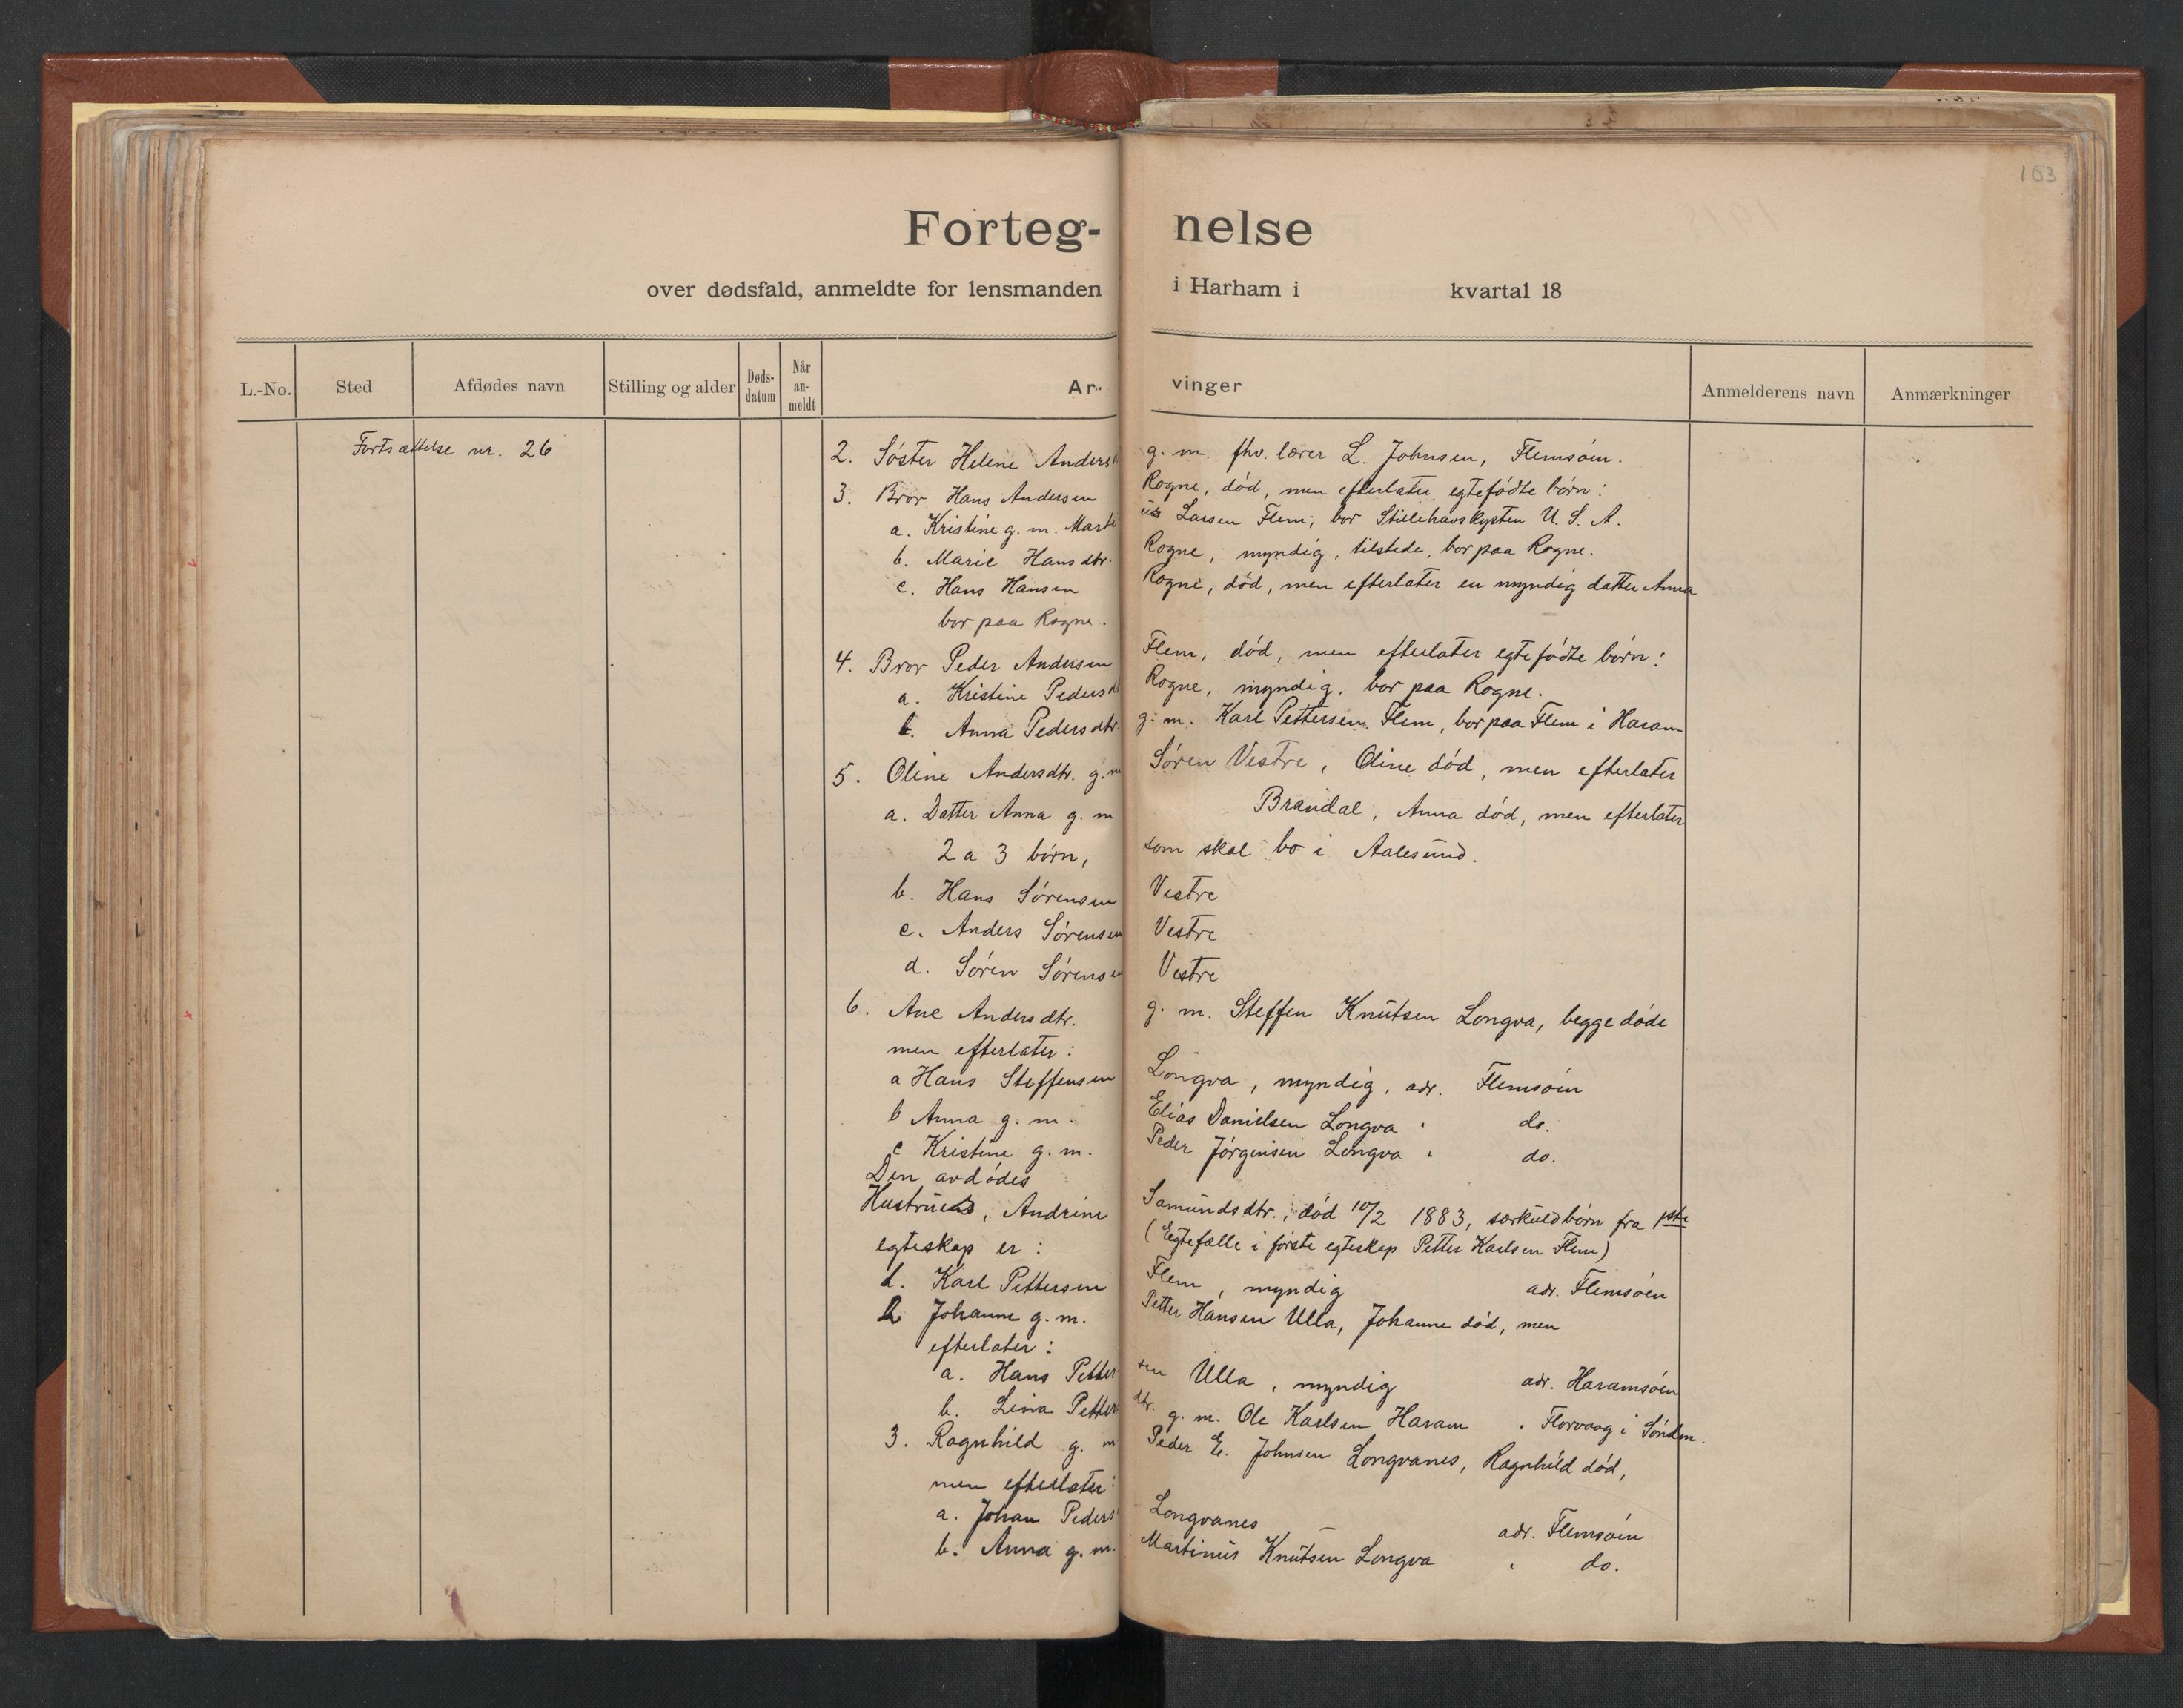 163
Forteg- nelse
over dødsfald, anmeldte for lensmanden i Harham i kvartal 18
L.-No. Sted Afdødes navn Stilling og alder Døds-datum Når an-meldt Ar- vinger Anmelderens navn Anmærkninger
Fortsættelse nr. 26
2. Søster Helene Anders g. m. fhv. lærer L. Johnsen, Flemsøen.
3. Bror Hans Andersen Rogne, død, men efterlater egtefødte børn:
a. Kristine g. m. Marti nus Larsen Flem, bor Stillehavskysten U. S. A.
b. Marie Hansdtr. Rogne, myndig, tilstede, bor paa Rogne.
c. Hans Hansen Rogne, død, men efterlater en myndig datter Anna
bor paa Rogne.
4. Bror Peder Andersen Flem, død, men efterlater egtefødte børn:
a. Kristine Pedersdt Rogne, myndig, bor paa Rogne.
b. Anna Pedersdtr. g. m. Karl Pettersen Flem, bor paa Flem i Haram
5. Oline Andersdtr. g. m Søren Vestre, Oline død, men efterlater
a. Datter Anna g. m Brandal, Anna død, men efterlater
2 a 3 børn, som skal bo i Aalesund.
b. Hans Sørensen Vestre
c. Anders Sørensen Vestre
d. Søren Sørensen Vestre
6. Ane Andersdtr. g. m. Steffen Knutsen Longva, begge døde
men efterlater:
a Hans Steffensen Longva, myndig, adr. Flemsøen
b Anna g. m. Elias Danielsen Longva " do.
c Kristine g. m. Peder Jørgensen Longva " do.
Den avdødes
Hustrues, Andrine Samundsdtr., død 10/2 1883, særkuldbørn fra 1ste
egteskap er: (Egtefælle i første egteskap Petter Karlsen Flem)
1. Karl Pettersen Flem, myndig adr. Flemsøen
2 Johanne g. m. Petter Hansen Ulla, Johanne død, men
efterlater:
a. Hans Petter sen Ulla, myndig adr. Haramsøen
b. Lina Petters dtr. g. m. Ole Karlsen Haram " Florvaag i Søndm.
3. Ragnhild g. m Peder E. Johnsen Longvanes, Ragnhild død,
men efterlater:
a. Johan Peders Longvanes adr. Flemsøen
b. Anna g. m. Martinus Knutsen Longva " do.